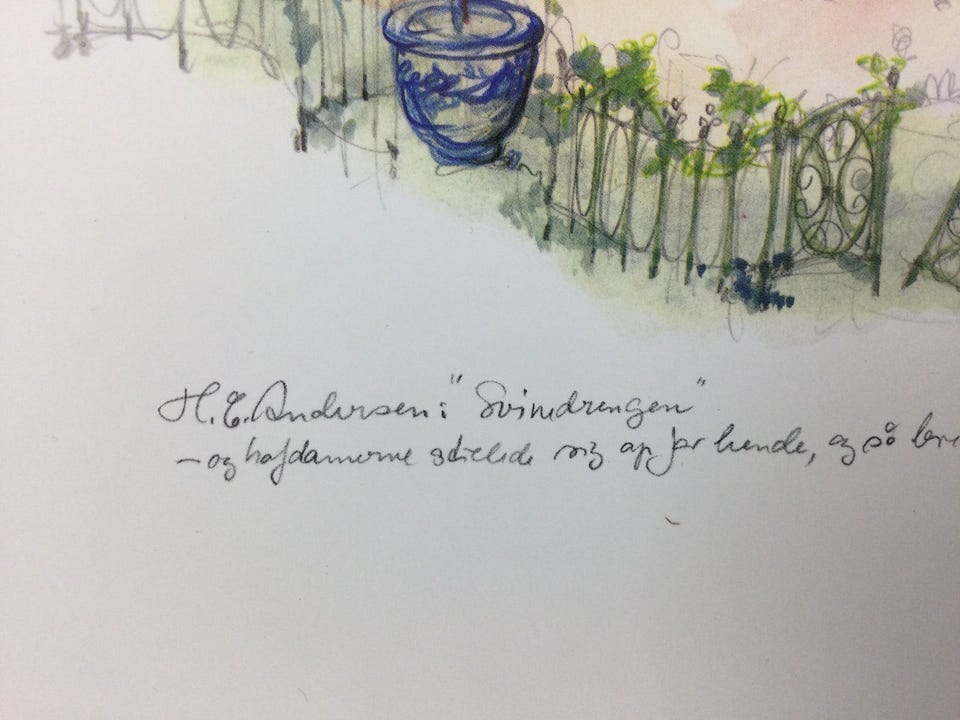 H.C. Andersen: "Svinedrengen"
– og hofdamerne stillede sig op for hende, og så bre